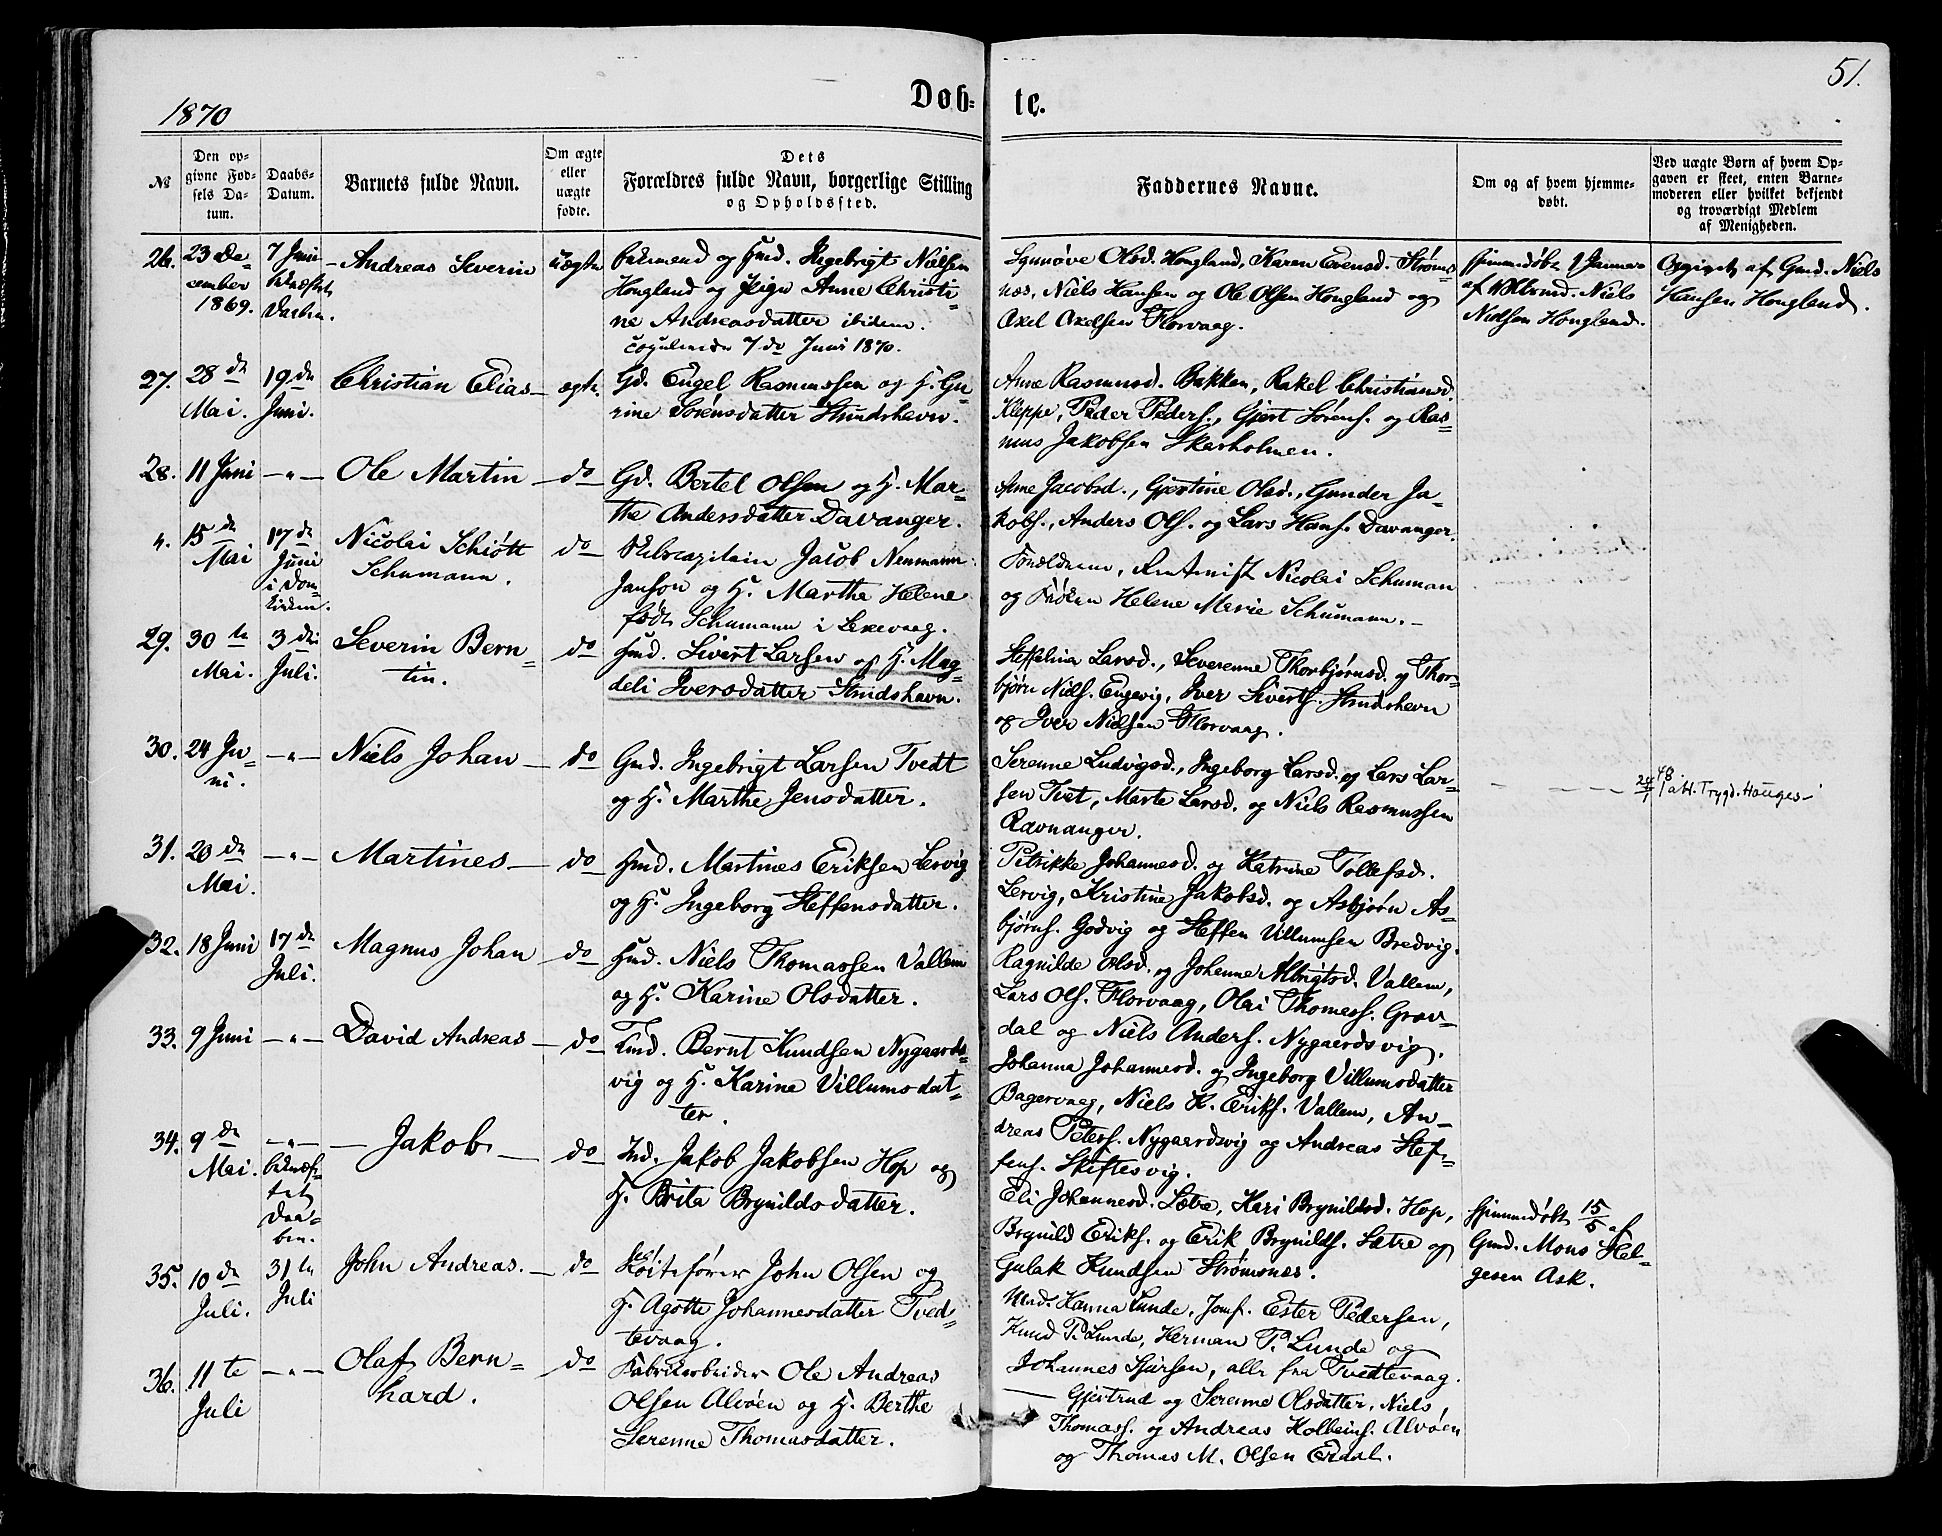 1870
Døb-
te.
51.
№
Den op-
givne Fød-
sels Da-
tum.
Daabs-
Datum.
Barnets fulde Navn.
Om ægte
eller
uægte
fødte.
Dets
Forældres fulde Navn, borgerlige Stilling
og Opholdssted.
Faddernes Navne.
Om og af hvem hjemme-
døbt.
Ved uægte Børn af hvem Op-
gaven er skeet, enten Barne-
moderen eller hvilket bekjendt
og troværdigt Medlem
af Menigheden.
26.
23 De-
cember
1869.
7 Juni
bekræftet
Daaben.
Andreas Severin
uægte
og Hmd. Ingebrigt Nielsen
Hougland og Pige Anne Christi-
ne Andreasdatter ibidem.
copulerede 7de Juni 1870.
Synnøve Olsd. Hougland, Karen Evensd. Strøms-
næs, Niels Hansen og Ole Olsen Hougland og
Axel Axelsen Florvaag.
hjemmedøbt 1 Januar
af Niels
Nielsen Hougland.
Opgivet af Gmd. Niels
Hansen Hougland.
27.
28de
Mai.
19de
Juni.
Christian Elias
ægte.
Gd. Engel Rasmussen og H. Gu-
rine Sørensdatter Strudshavn.
Anne Rasmusd. Bakken, Rakel Christiansd.
Kleppe, Peder Peders., Gjert Sørens. og Ras-
mus Jakobsen Skarholmen.
28.
11 Juni
-"-
Ole Martin
do
Gd. Bertel Olsen og H. Mar-
the Andersdatter Davanger.
Anne Jacobsd., Gjertine Olsd., Gunder Ja-
kobs., Anders Ols. og Lars Hans. Davanger.
4.
15de
Mai
17de
Juni
i Dom-
kirken.
Nicolai Schiøtt
Schumann.
do
Jacob Neumann
Janson og H. Marthe Helene
født Schumann i Lexevaag.
Forældrene, Nicolai Schuman
og Frøken Helene Marie Schumann.
29.
30te
Mai.
3die
Juli.
Severin Bern-
tin.
do
Hmd. Sivert Larsen og H. Mag-
deli Iversdatter Strudshavn.
Steffelina Larsd., Severenne Thorbjørnsd. og Thor-
bjørn Niels. Engevig, Iver Siverts. Strudshavn
og Iver Nielsen Florvaag.
30.
24 Ju-
ni.
-"-
Niels Johan
do
Gmd. Ingebrigt Larsen Tvedt
og H. Marthe Jensdatter.
Serenne Ludvigsd., Ingeborg Larsd. og Lars Lar-
sen Tvet, Marte Larsd. og Niels Rasmussen
Ravnanger.
Trygd. Hauges-
31.
20de
Mai.
-"-
Martines
do
Hmd. Martines Eriksen Lervig
og H. Ingeborg Steffensdatter.
Petrikke Johannesd. og Katrine Tollefsd.
Lervig, Kristine Jakobsd. og Asbjørn As-
bjørns. Godvig og Steffen Villumsen Bredvig.
32.
18 Juni
17de
Juli.
Magnus Johan
do
Hmd. Niels Thomassen Vallem
og H. Karine Olsdatter.
Ragnilde Olsd. og Johanne Albrigtsd. Vallem,
Lars Ols. Florvaag, Olai Thomass. Grav-
dal og Niels Anders. Nygaardsvig.
33.
9 Juni
-"-
David Andreas
do
Hmd. Bernt Knudsen Nygaards-
vig og H. Karine Villumsdat-
ter.
Johanna Johannesd. og Ingeborg Villumsdatter
Bagervaag, Niels H. Eriks. Vallem, An-
dreas Peters. Nygaardsvig og Andreas Stef-
fens. Skiftesvig.
34.
9de
Mai.
-"-
bekræf-
tet
Daa-
ben.
Jakob
do
Ind. Jakob Jakobsen Hop og
H. Brita Brynildsdatter.
Eli Johannesd. Sætre, Kari Brynildsd. Hop,
Brynild Eriks. og Erik Brynilds. Sætre og
Gulak Knudsen Strømsnæs.
hjemmedøbt 15/5 af
Gmd. Mons Hel-
gesen Ask.
35.
10de
Juli.
31te
Juli
John Andreas.
do
Skøitefører John Olsen og
H. Agotte Johannesdatter Tved-
tevaag.
Mad. Hanna Lunde, Jomf. Ester Pedersen,
Knud P. Lunde, Herman P. Lunde og
Johannes Sjursen, alle fra Tvedtevaag.
36.
11te
Juli
-"-
Olaf Bern-
hard.
do
Fabrikarbeider Ole Andreas
Olsen Alvøen og H. Berthe
Serenne Thomasdatter.
Gjertrud og Serenne Olsdatter, Niels
Thomass. og Andreas Holbeins. Alvøen
og Thomas M. Olsen Erdal.